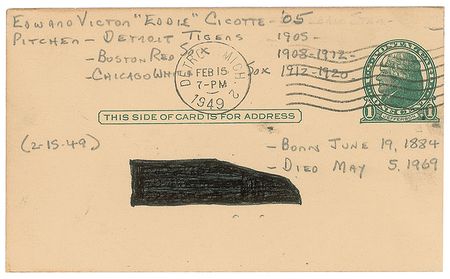 EDWARD VICTOR "EDDIE" CICOTTE - '05
PITCHER - DETROIT TIGERS 1905-
- BOSTON RED SOX 1908-1912-
- CHICAGO WHITE SOX 1912-1920
DETROIT, MICH. 2
FEB 15
7-PM
1949
THIS SIDE OF CARD IS FOR ADDRESS
1 JEFFERSON 1
(2-15-49)
- BORN JUNE 19, 1884
- DIED MAY 5, 1969